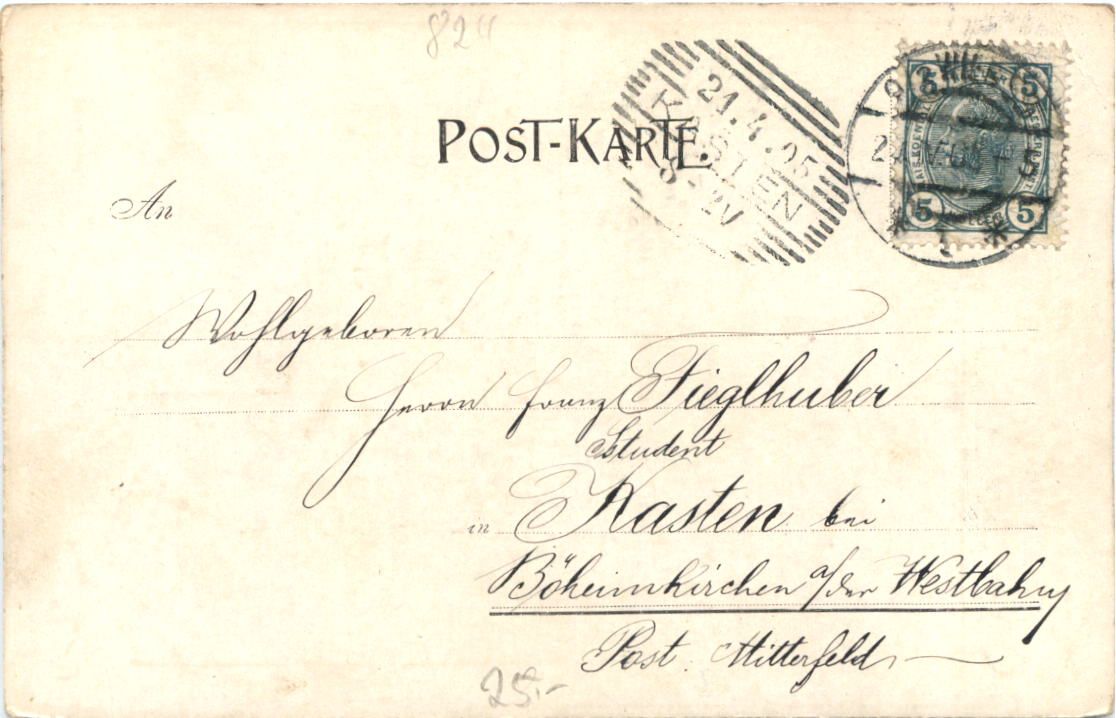 824
POST-KARTE
21.4.05
KASTEN
8-2N
5 5
5 5
* 1 *
An
Wohlgeboren
Herrn Franz Fieglhuber
Student
in Kasten bei
Böheimkirchen a/der Westbahn
Post. Mitterfeld
25.-